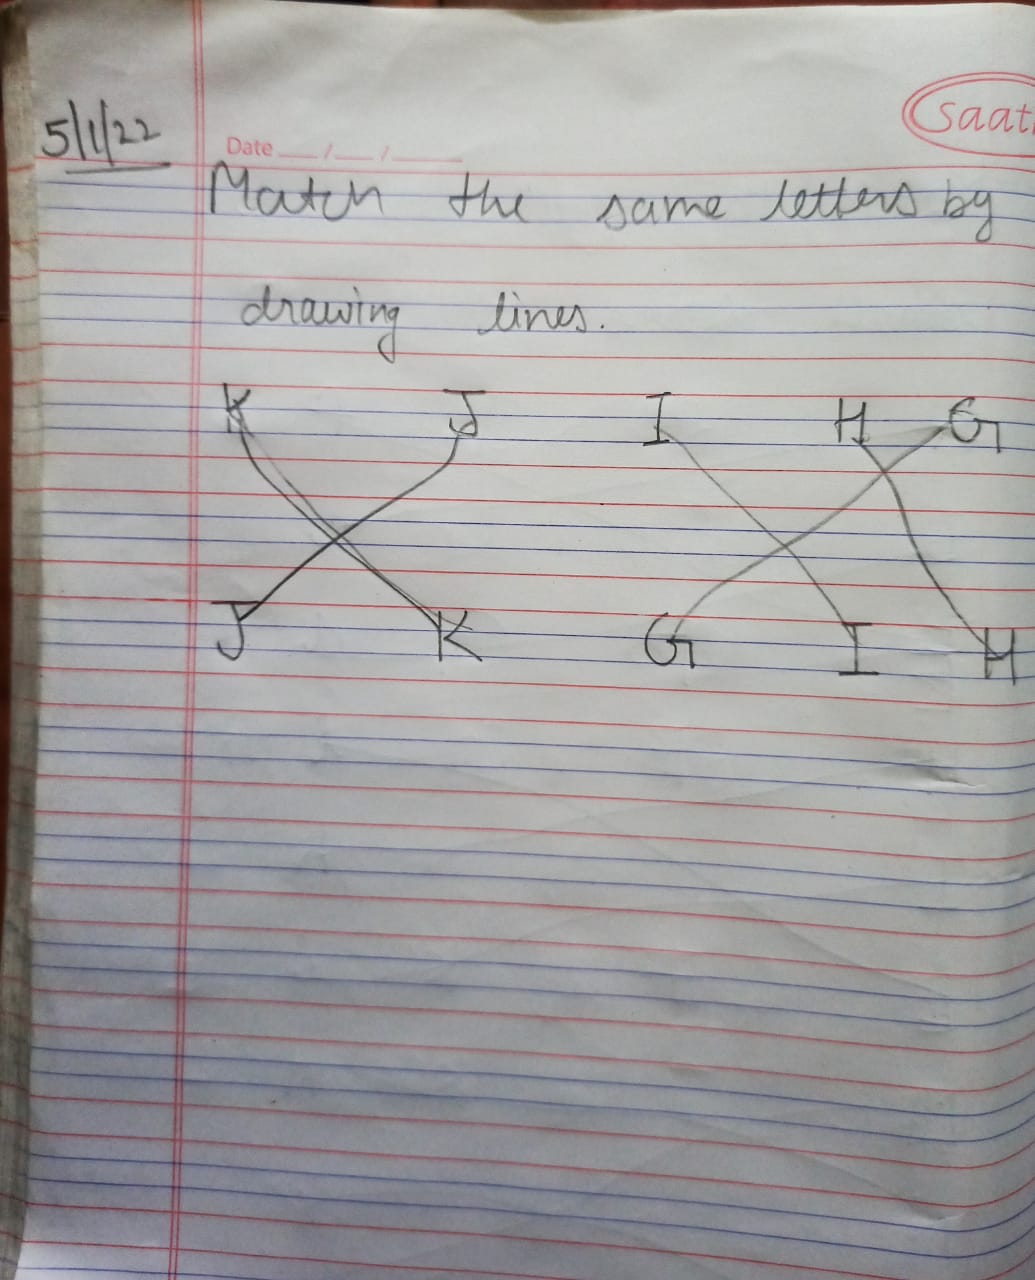 5/1/22
Date __/__/____
Saat
Match the same letters by
drawing lines.
K J I H G
J K G I H